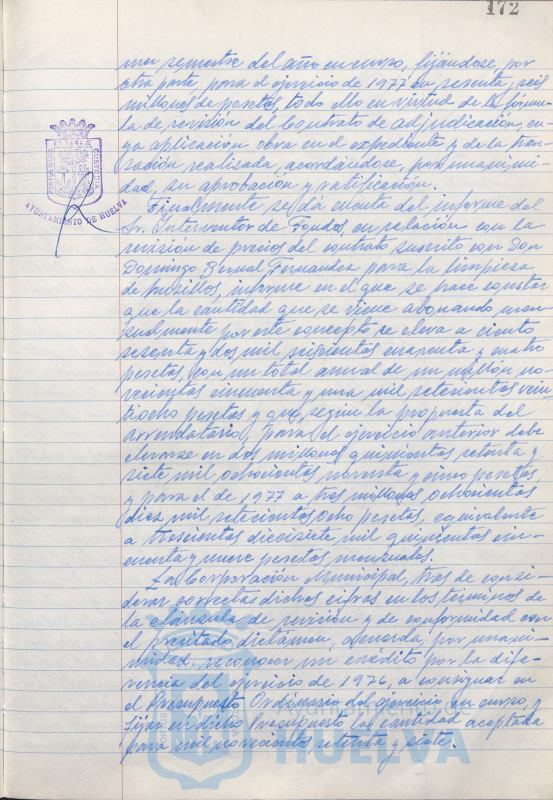 172
mer semestre del año en curso, fijándose, por
otra parte, para el ejercicio de 1977 en sesenta y seis
millones de pesetas, todo ello en virtud de la fórmu-
la de revisión del Contrato de adjudicación cu-
ya aplicación obra en el expediente y de la tran-
sación realizada, acordándose, por unanimi-
dad, su aprobación y ratificación.
Finalmente se dá cuenta del informe del
Sr. Interventor de Fondos en relación con la
revisión de precios del contrato suscrito con Don
Domingo Bernal Fernandez para la limpieza
de husillos, informe en el que se hace constar
que la cantidad que se viene abonando men-
sualmente por este concepto se eleva a ciento
sesenta y dos mil seiscientas cuarenta y cuatro
pesetas, con un total anual de un millón no-
vecientas cincuenta y una mil setecientas vein-
tiocho pesetas y que, según la propuesta del
arrendatario, para el ejercicio anterior debe
elevarse en dos millones quinientas setenta y
siete mil ochocientas noventa y cinco pesetas,
y para el de 1977 a tres millones ochocientas
diez mil setecientas ocho pesetas, equivalente
a trescientas diecisiete mil quinientas cin-
cuenta y nueve pesetas mensuales.
La Corporación Municipal, tras de consi-
derar correctas dichas cifras en los términos de
la cláusula de revisión y de conformidad con
el precitado dictámen, acuerda, por unani-
midad, reconocer un crédito por la dife-
rencia del ejercicio de 1976, a consignar en
el Presupuesto Ordinario del ejercicio en curso, y
fijar en dicho Presupuesto la cantidad aceptada
para mil novecientos setenta y siete.
AYUNTAMIENTO DE HUELVA
HUELVA